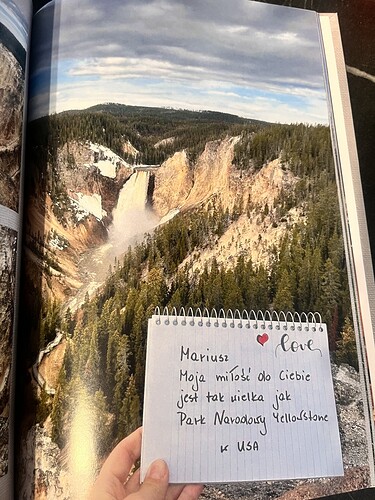 love
Mariusz
Moja miłość do Ciebie
jest tak wielka jak
Park Narodowy Yellowstone
w USA